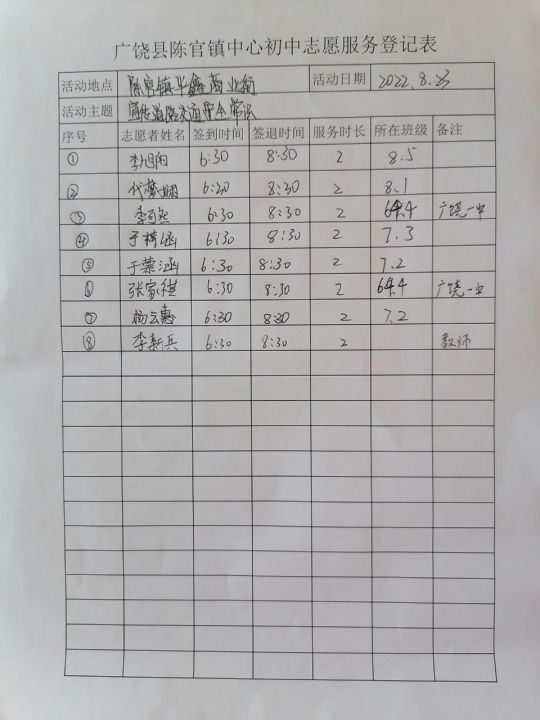 广饶县陈官镇中心初中志愿服务登记表
活动地点 陈官镇华鑫商业街 活动日期 2022.8.23
活动主题 宣传道路交通安全常识
序号 志愿者姓名 签到时间 签退时间 服务时长 所在班级 备注
① 李旭阳 6:30 8:30 2 8.5
② 代梦娟 6:20 8:30 2 8.1
③ 李可 6:30 8:30 2 64.4 广饶一中
④ 于梓涵 6:30 8:30 2 7.3
⑤ 于荣涵 6:30 8:30 2 7.2
⑥ 张家祺 6:30 8:30 2 64.4 广饶一中
⑦ 杨云惠 6:30 8:30 2 7.2
⑧ 李新兵 6:30 8:30 2 教师